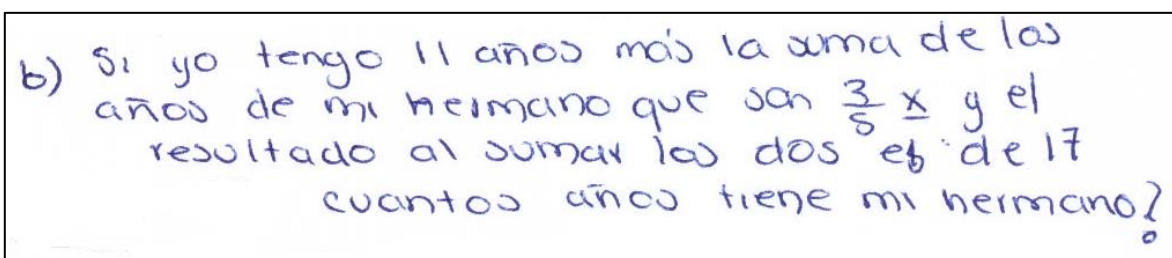 b) Si yo tengo 11 años más la suma de los
años de mi hermano que son 3/5 x y el
resultado al sumar los dos es de 17
cuantos años tiene mi hermano?